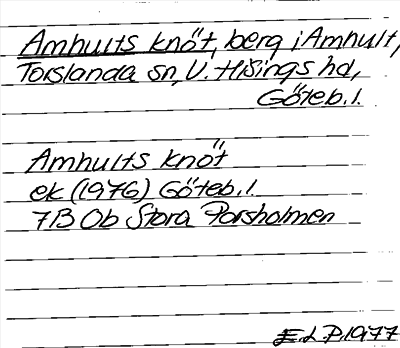 Amhults knöt, berg i Amhult,
Torslanda sn, V. Hisings hd,
Göteb. l.
Amhults knöt
ek (1976) Göteb. l.
7B 0b Stora Porsholmen
E.L.P. 1977